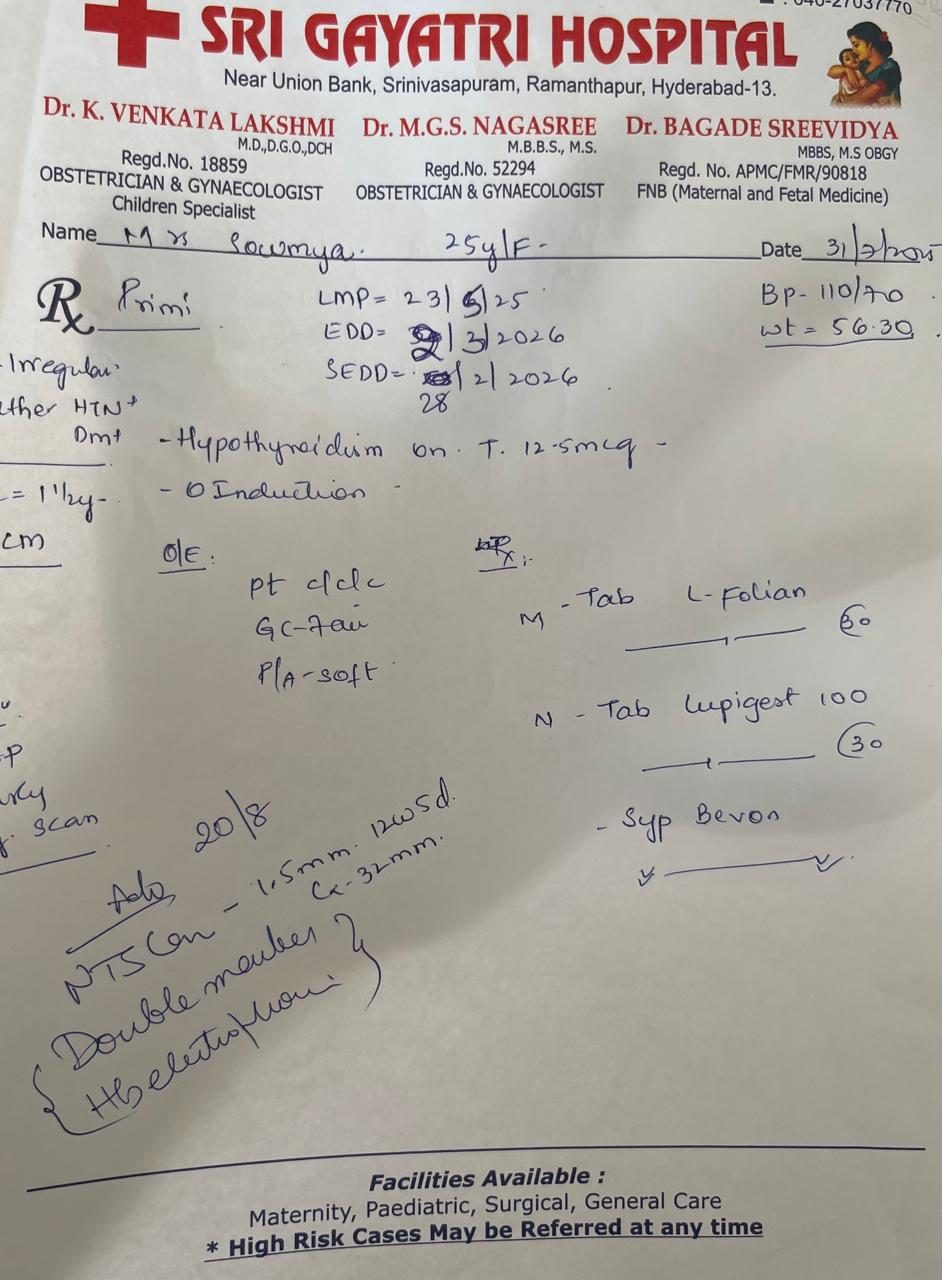 : 040-27037770
SRI GAYATRI HOSPITAL
Near Union Bank, Srinivasapuram, Ramanthapur, Hyderabad-13.
Dr. K. VENKATA LAKSHMI
M.D.,D.G.O.,DCH
Regd.No. 18859
OBSTETRICIAN & GYNAECOLOGIST
Children Specialist
Dr. M.G.S. NAGASREE
M.B.B.S., M.S.
Regd.No. 52294
OBSTETRICIAN & GYNAECOLOGIST
Dr. BAGADE SREEVIDYA
MBBS, M.S OBGY
Regd. No. APMC/FMR/90818
FNB (Maternal and Fetal Medicine)
Name Mrs Sowmya. 25y/F- Date 31/7/2025
Rx Primi
LMP= 23/5/25
EDD= 2/3/2026
SEDD= 28/2/2026
BP- 110/70
wt = 56.30
- Irregular
HTN+
Dm+
= 1 1/2y-
cm
- Hypothyroidism on. T. 12.5mcg -
- O Induction -
O/E:
pt c/c/c
GC-Fair
P/A-soft
Rx:-
M - Tab L-Folian
60
N - Tab Lupigest 100
30
- Syp Bevon
scan
Adv 20/8
NT Scan - 1.5mm. 12w5d.
Cx-32mm.
{ Double marker }
Facilities Available :
Maternity, Paediatric, Surgical, General Care
* High Risk Cases May be Referred at any time